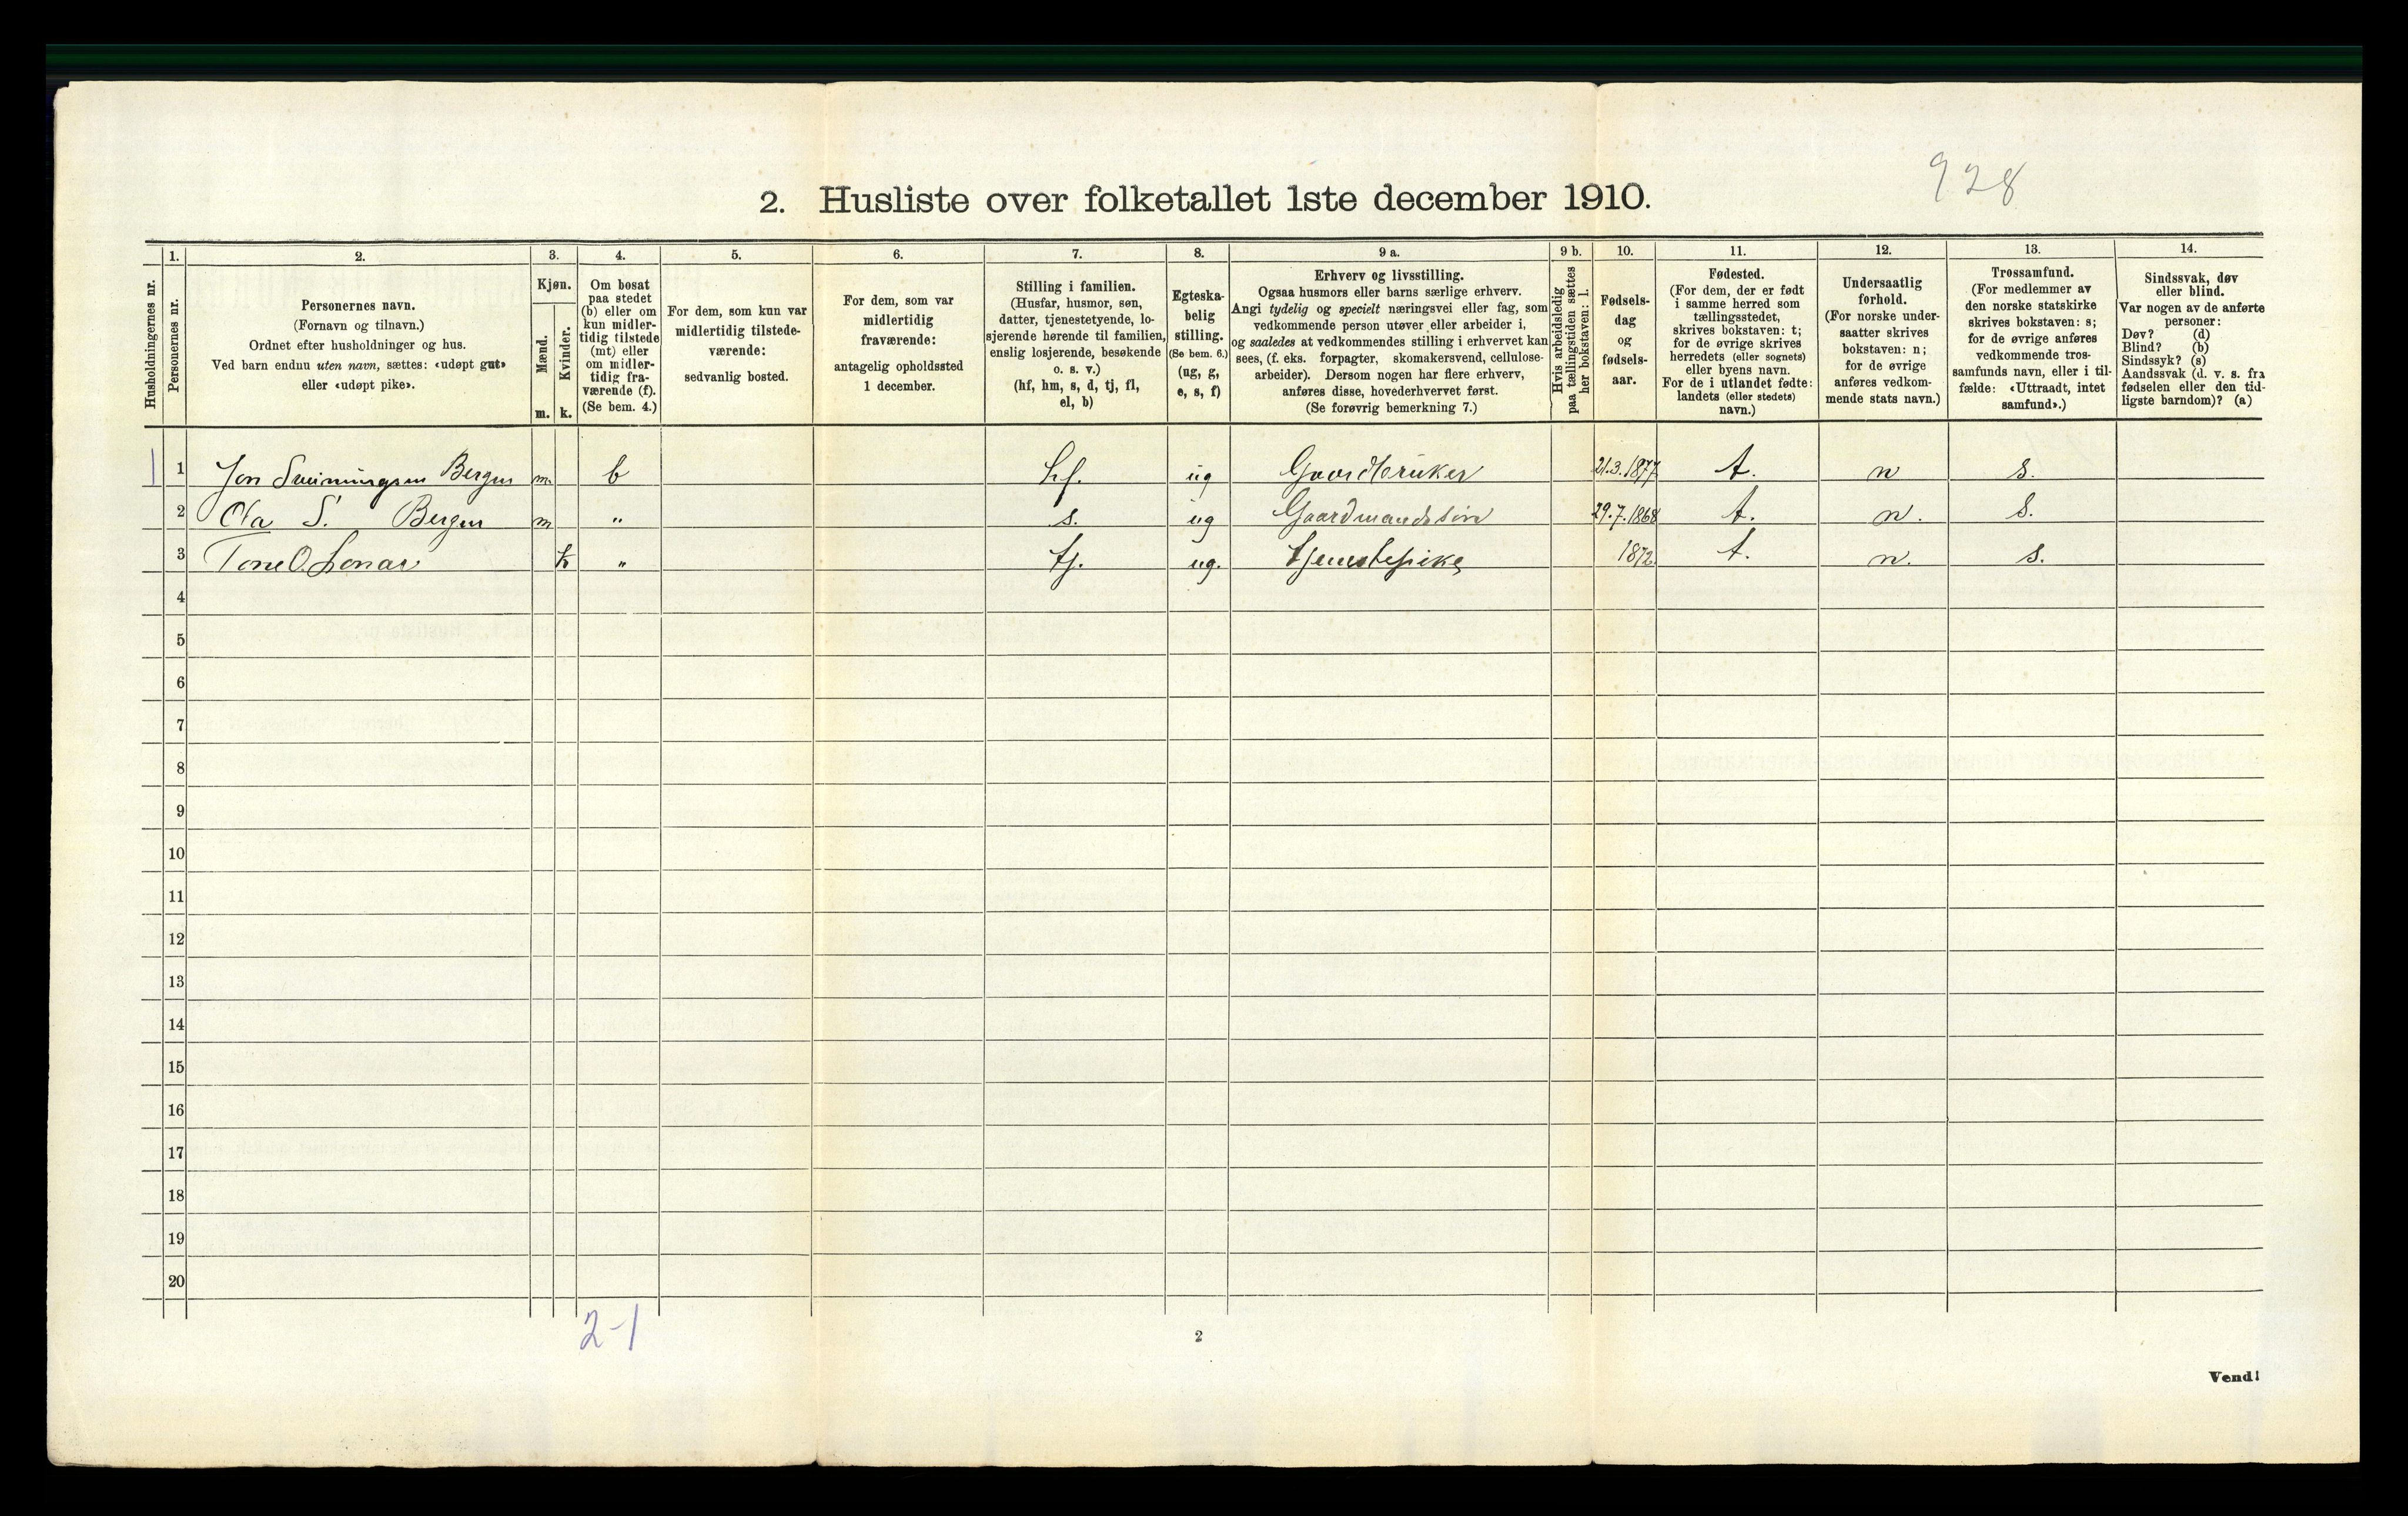 928
2. Husliste over folketallet 1ste december 1910.
Husholdningernes nr.
1.
Personernes nr.
2.
Personernes navn.
(Fornavn og tilnavn.)
Ordnet efter husholdninger og hus.
Ved barn endnu uten navn, sættes: «udøpt gut»
eller «udøpt pike».
3.
Kjøn.
Mænd.
m.
Kvinder.
k.
4.
Om bosat
paa stedet
(b) eller om
kun midler-
tidig tilstede
(mt) eller
om midler-
tidig fra-
værende (f).
(Se bem. 4.)
5.
For dem, som kun var
midlertidig tilstede-
værende:
sedvanlig bosted.
6.
For dem, som var
midlertidig
fraværende:
antagelig opholdssted
1 december.
7.
Stilling i familien.
(Husfar, husmor, søn,
datter, tjenestetyende, lo-
sjerende hørende til familien,
enslig losjerende, besøkende
o. s. v.)
(hf, hm, s, d, tj, fl,
el, b)
8.
Egteska-
belig
stilling.
(Se bem. 6.)
(ug, g,
e, s, f)
9 a.
Erhverv og livsstilling.
Ogsaa husmors eller barns særlige erhverv.
Angi tydelig og specielt næringsvei eller fag, som
vedkommende person utøver eller arbeider i,
og saaledes at vedkommendes stilling i erhvervet kan
sees, (f. eks. forpagter, skomakersvend, cellulose-
arbeider). Dersom nogen har flere erhverv,
anføres disse, hovederhvervet først.
(Se forøvrig bemerkning 7.)
9 b.
Hvis arbeidsledig
paa tællingstiden sættes
her bokstaven: l.
10.
Fødsels-
dag
og
fødsels-
aar.
11.
Fødested.
(For dem, der er født
i samme herred som
tællingsstedet,
skrives bokstaven: t;
for de øvrige skrives
herredets (eller sognets)
eller byens navn.
For de i utlandet fødte:
landets (eller stedets)
navn.)
12.
Undersaatlig
forhold.
(For norske under-
saatter skrives
bokstaven: n;
for de øvrige
anføres vedkom-
mende stats navn.)
13.
Trossamfund.
(For medlemmer av
den norske statskirke
skrives bokstaven: s;
for de øvrige anføres
vedkommende tros-
samfunds navn, eller i til-
fælde: «Uttraadt, intet
samfund».)
14.
Sindssvak, døv
eller blind.
Var nogen av de anførte
personer:
Døv? (d)
Blind? (b)
Sindssyk? (s)
Aandssvak (d. v. s. fra
fødselen eller den tid-
ligste barndom)? (a)
1 1 Jon Sveinungsen Bergen m. b hf. ug Gaardbruker 21.3.1877 t. n s.
2 Ola S. Bergen m " s. ug Gaardmandsøn 29.7.1868 t. n. s.
3 Tone O. Lonar k " tj. ug. tjenestepike 1872. t. n. s.
4
5
6
7
8
9
10
11
12
13
14
15
16
17
18
19
20
2-1
2
Vend!